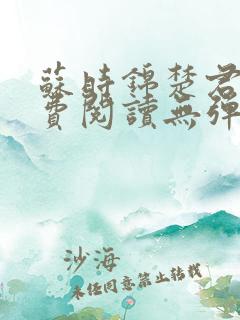 蘇時錦楚君
費閱讀無彈
沙海
未經同意禁止轉載